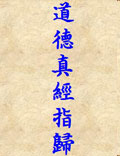 道德真經指歸